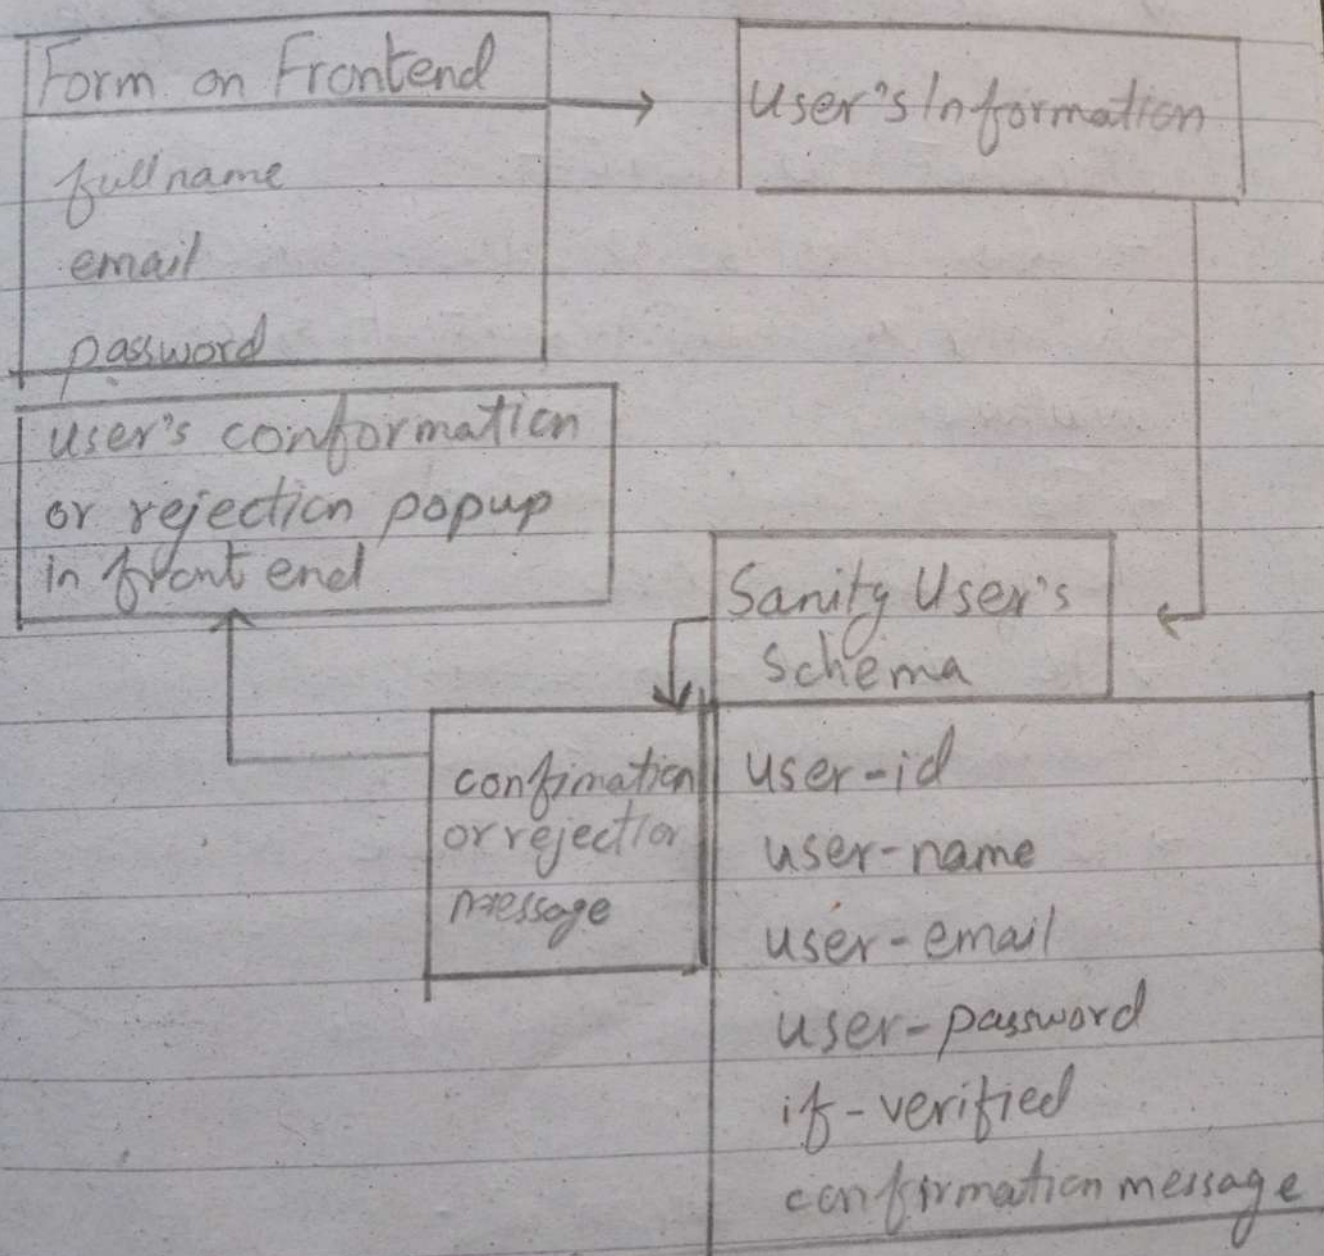 Form on Frontend
full name
email
password
User's Information
user's conformation
or rejection popup
in front end
Sanity User's
Schema
confimation
or rejection
message
user-id
user-name
user-email
user-password
if-verified
confirmation message